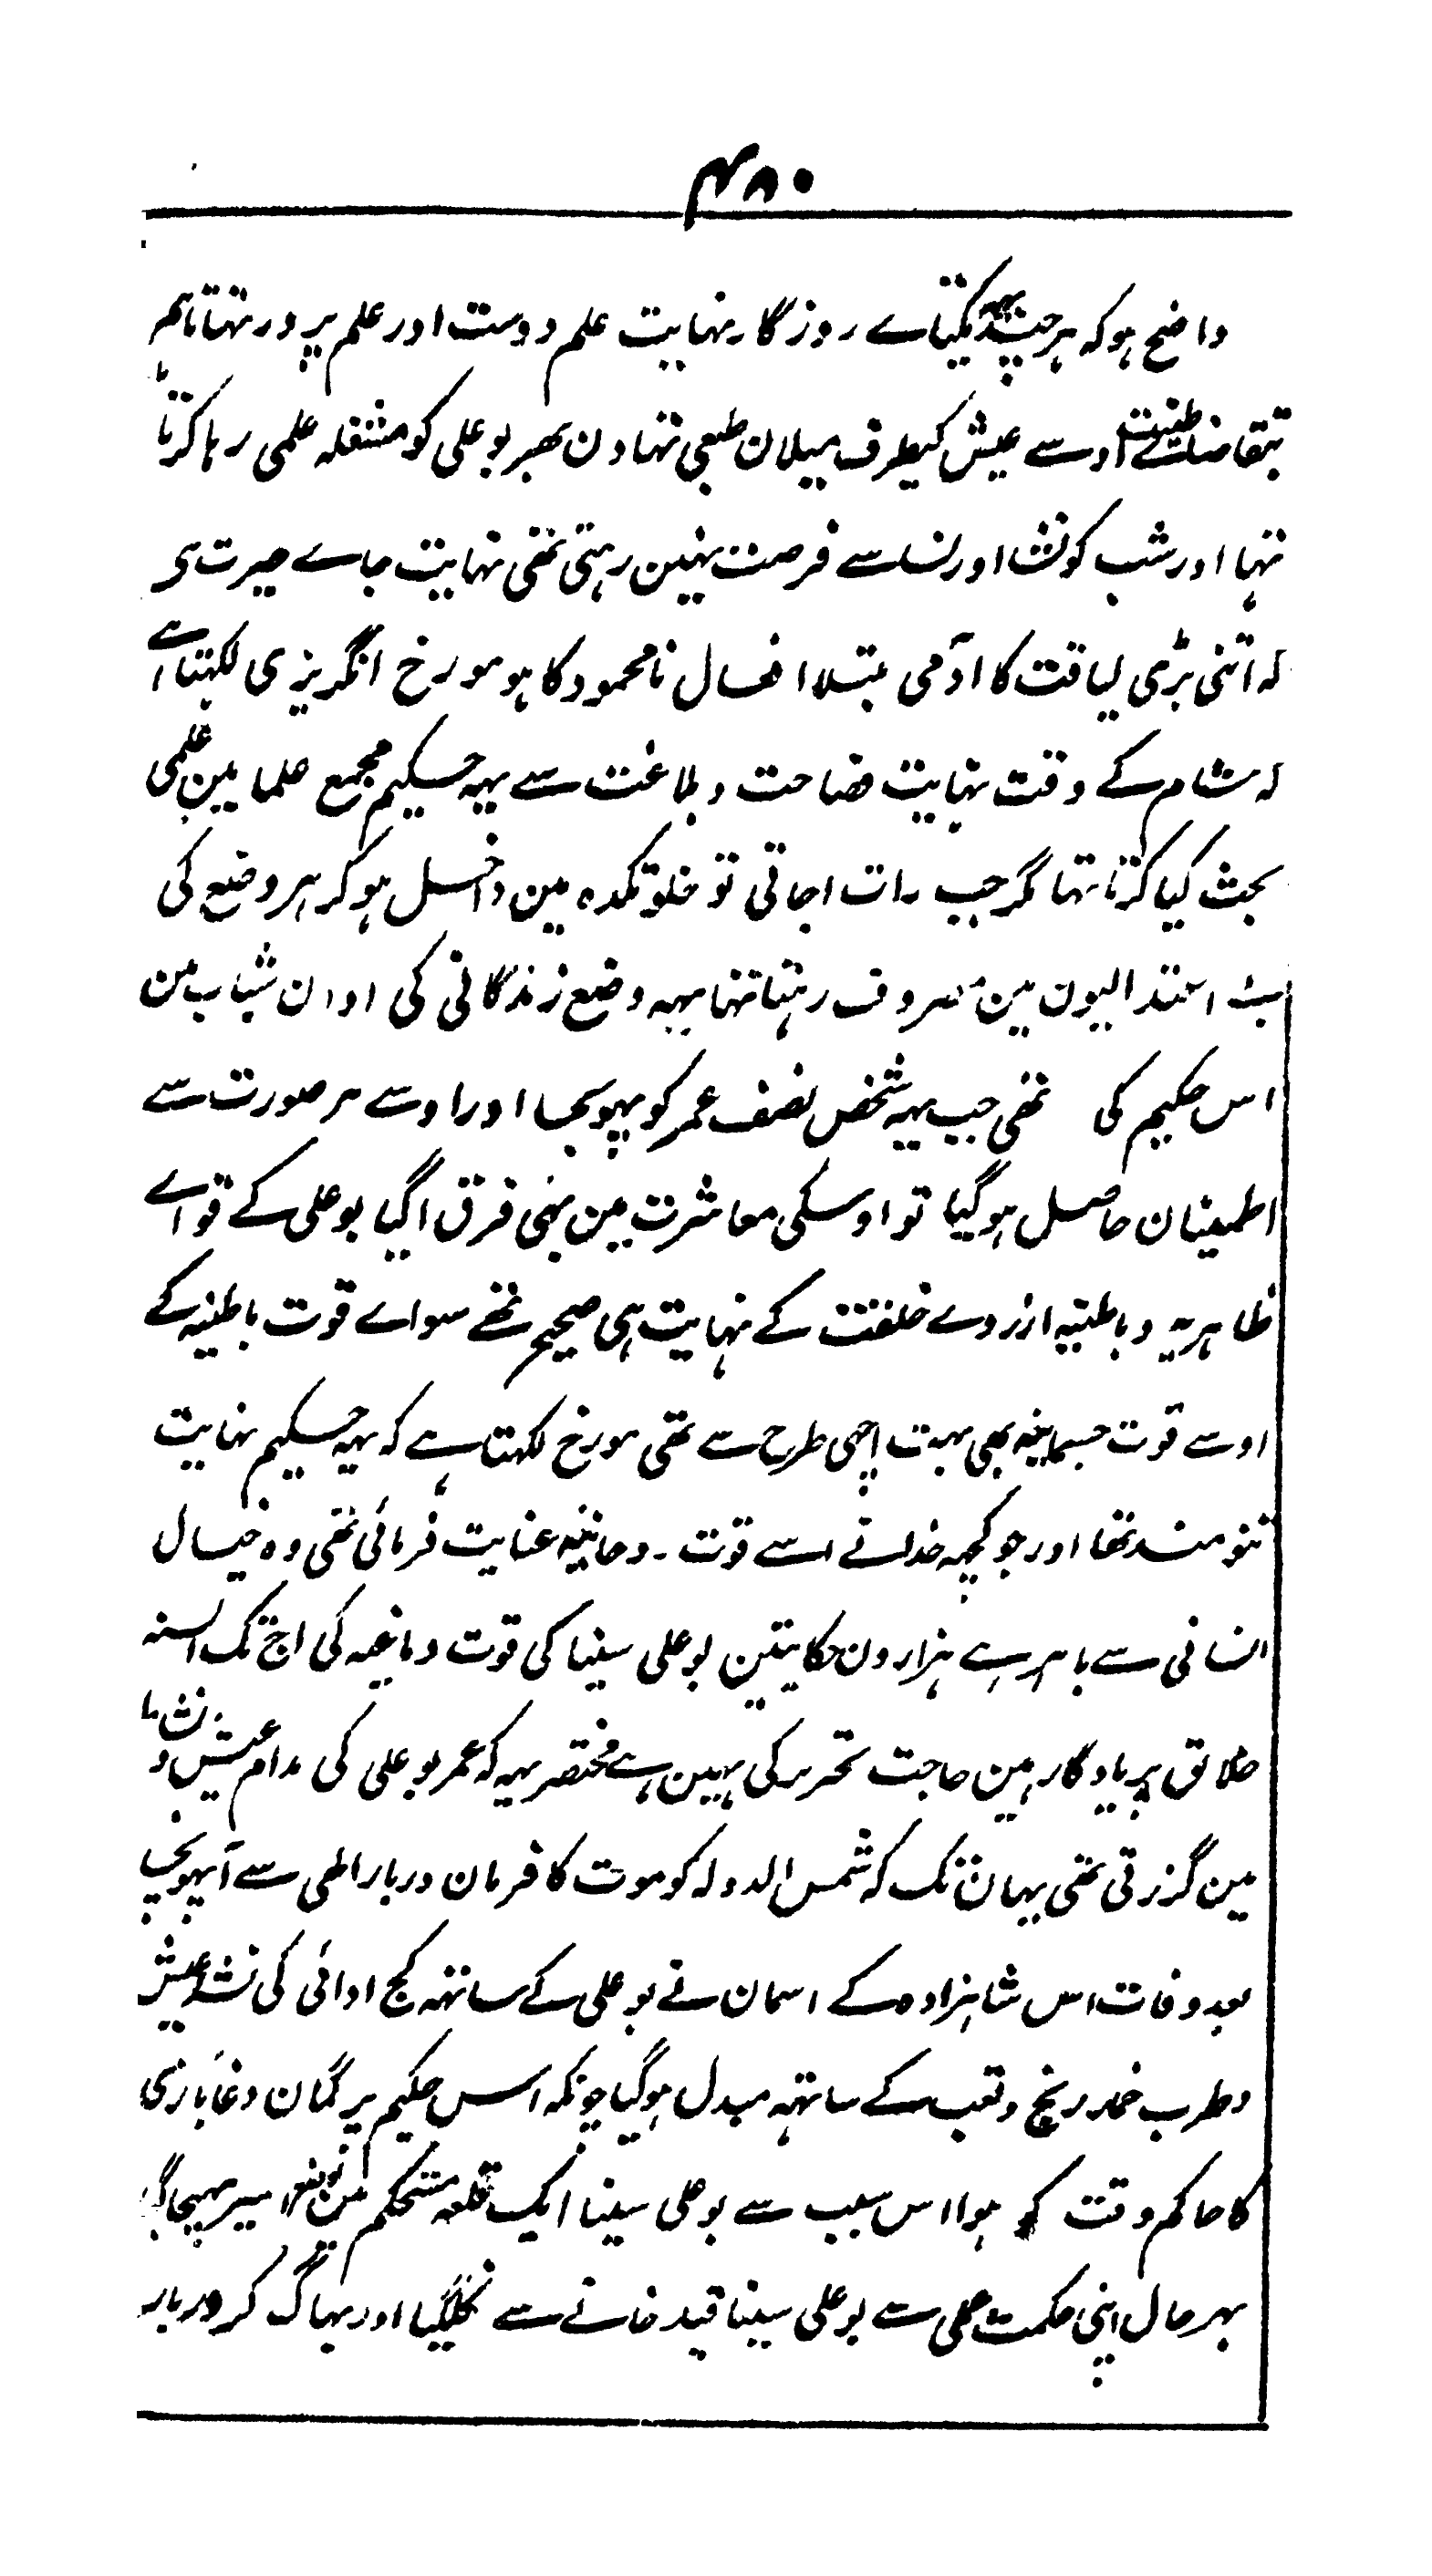 ۴۸۰
واضح ہوکہ ہرچند یہہ یکتاے روزگار نہایت علم دوست اور علم پرور تہا تاہم
بتقاضاے طینت اوسے عیش کیطرف میلان طبعی تہا دن بھر بوعلی کو مشغلہ علمی رہا کرتا
تہا اور شب کو نشا اور نسا سے فرصت نہین رہتی تھی نہایت جاے حیرت ہی
کہ اتنی بڑی لیاقت کا آدمی مبتلا افعال نامحمود کا ہو مورخ انگریزی لکہتا ہے
کہ شام کے وقت نہایت فصاحت و بلاغت سے یہہ حکیم مجمع علما مین علمی
بحث کیا کرتا تہا مگر جب رات اجاتی تو خلوتکدہ مین داخل ہوکر ہر وضع کی
بے اعتدالیون مین مصروف رہتا تہا یہہ وضع زندگانی کی اوان شباب مین
اس حکیم کی تھی جب یہہ شخص نصف عمر کو پہونچا اور اوسے ہر صورت سے
اطمینان حاصل ہوگیا تو اوسکی معاشرت مین بہی فرق اگیا بوعلی کے قواے
ظاہریہ و باطنیہ ازروے خلقت کے نہایت ہی صحیح تھے سواے قوت باطنیہ کے
اوسے قوت جسمانیہ بھی بہت اچھی طرح سے تھی مورخ لکہتا ہے کہ یہہ حکیم نہایت
تنومند تھا اور جو کچہہ خدا نے اسے قوت روحانیہ عنایت فرمائی تھی وہ خیال
انسانی سے باہر ہے ہزارون حکایتین بوعلی سینا کی قوت دماغیہ کی اج تک السنہ
خلائق پر یادگار ہین حاجت تحریر کی نہین ہے مختصر یہہ کہ عمر بوعلی کی مدام عیش و نشاط
مین گزرتی تھی یہان تک کہ شمس الدولہ کو موت کا فرمان دربار الہی سے آپہونچا
بعد وفات اس شاہزادہ کے اسمان نے بوعلی کے ساتہہ کج ادائی کی نشہ عیش
و طرب خمار رنج و تعب کے ساتہہ مبدل ہوگیا چونکہ اس حکیم پر گمان دغابازی
کا حاکم وقت کو ہوا اس سبب سے بوعلی سینا ایک قلعہ مستحکم مین اسیر بہیجا گیا
بہرحال اپنی حکمت عملی سے بوعلی سینا قیدخانے سے نکلگیا اور بہاگ کر دربار